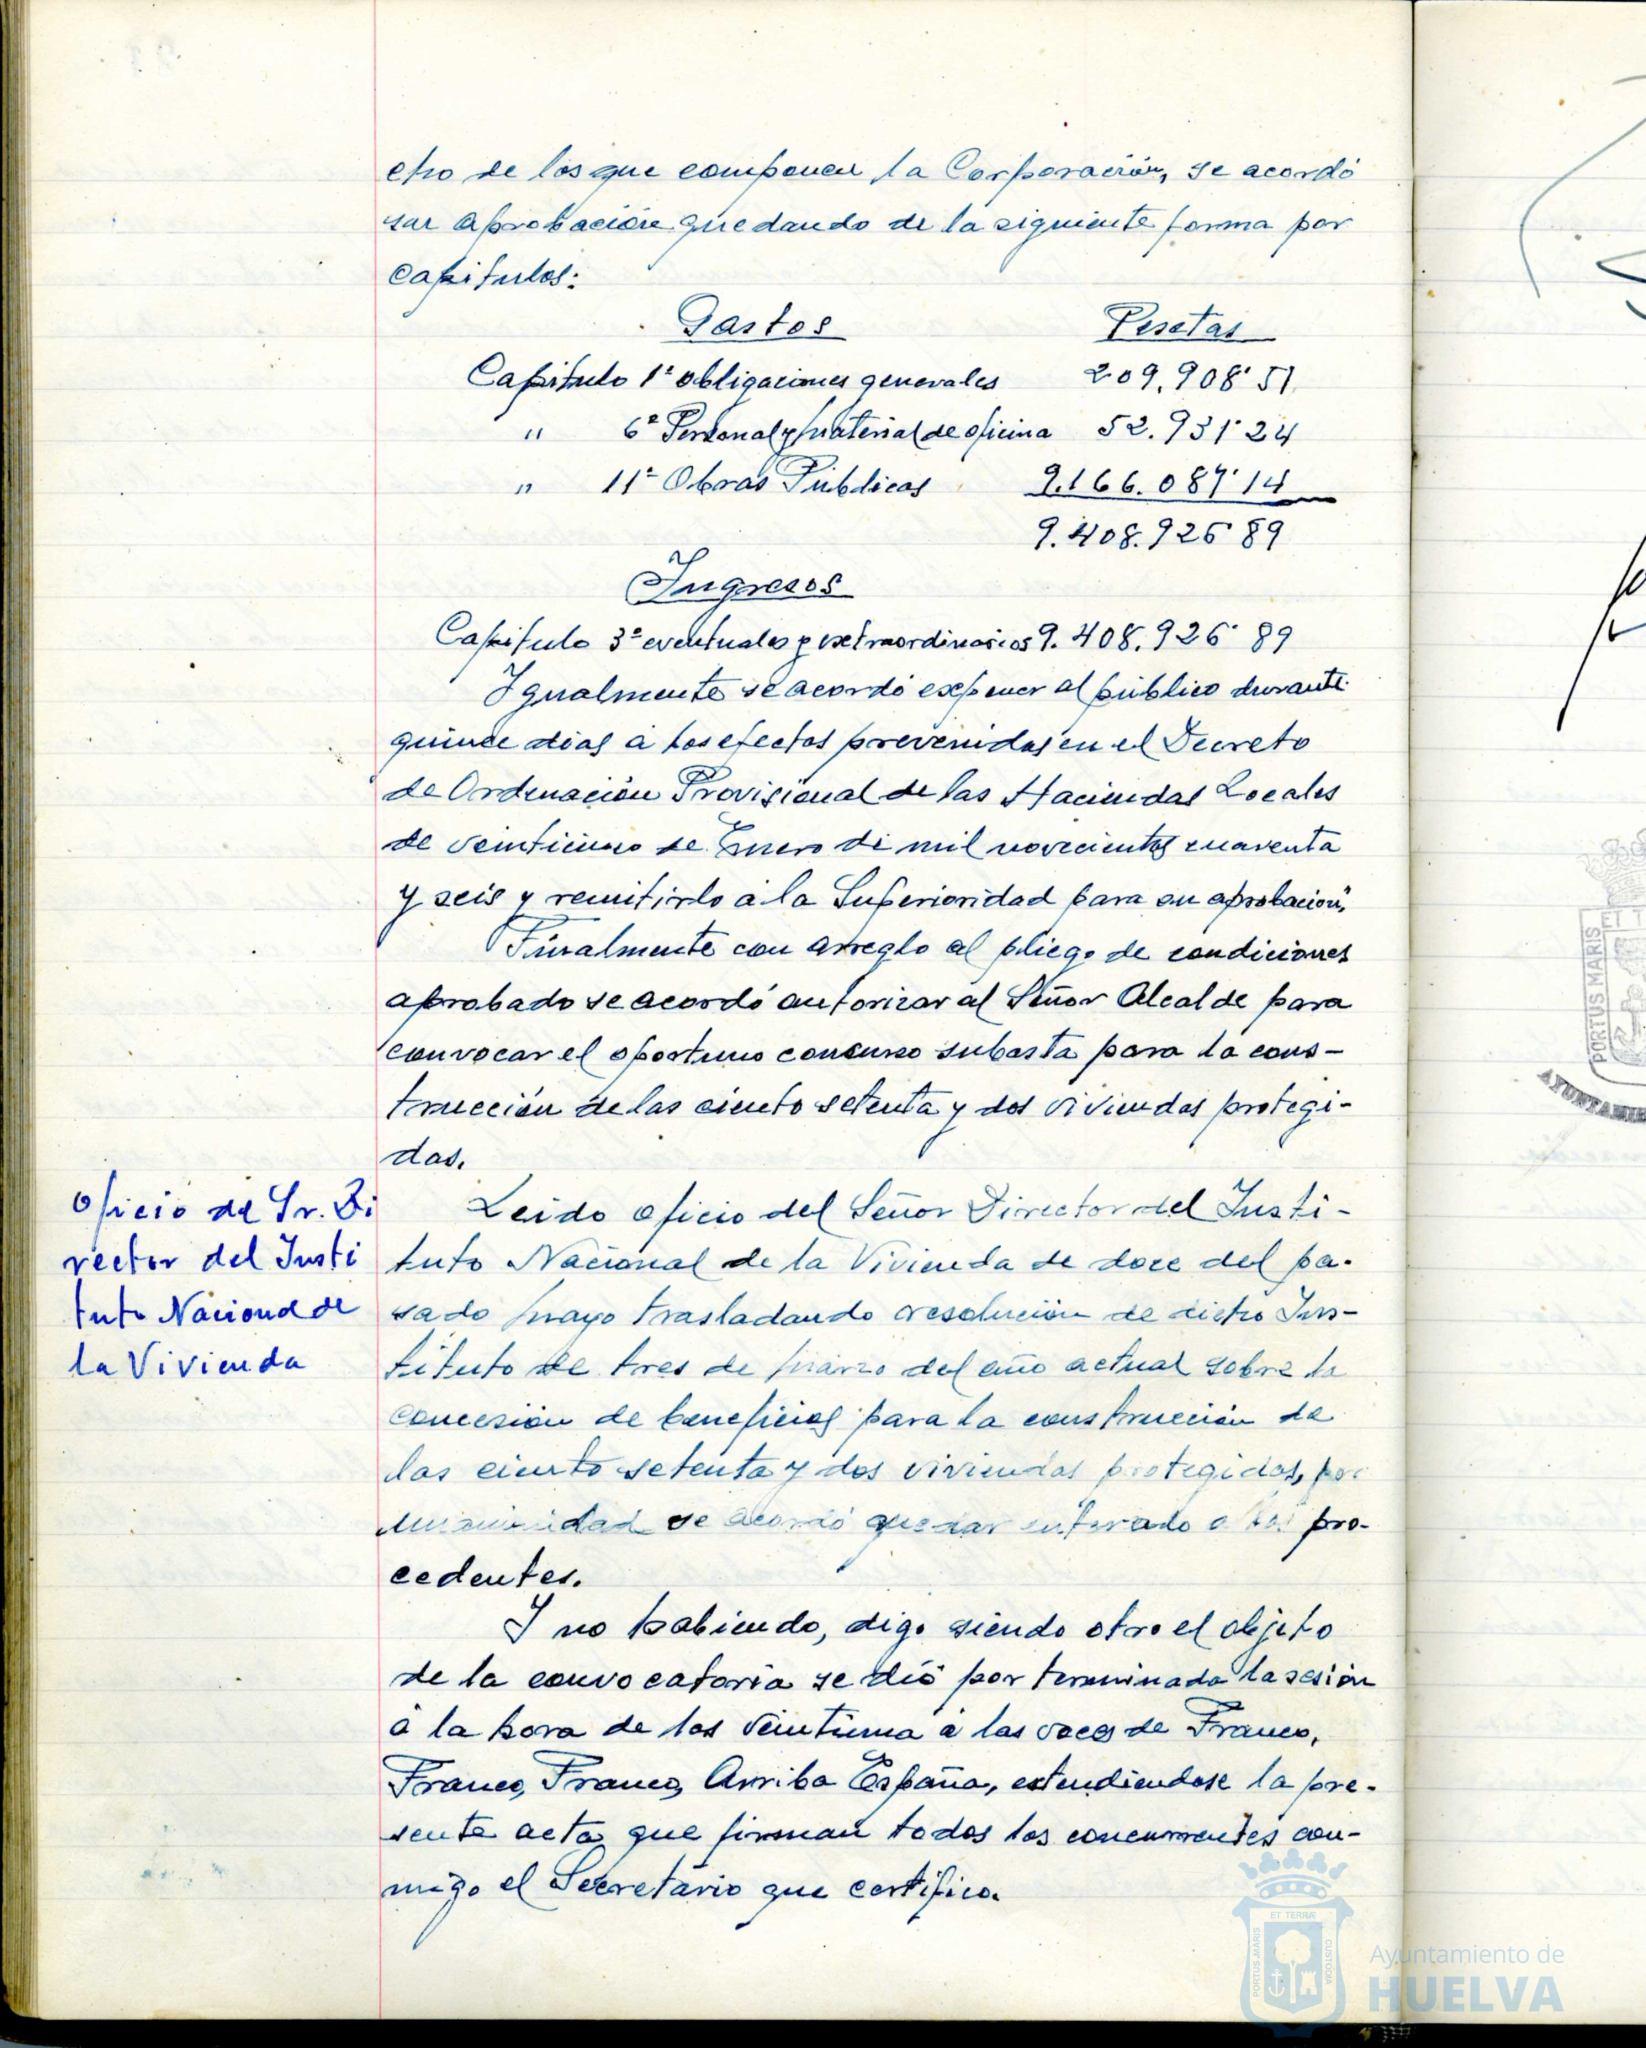 cho de los que componen la Corporación, se acordó
su aprobación quedando de la siguiente forma por
capitulos:
Gastos Pesetas
Capitulo 1º obligaciones generales 209.908'51
" 6º Personal y material de oficina 52.931'24
" 11º Obras Públicas 9.166.087'14
9.408.926'89
Ingresos
Capitulo 3º eventuales y extraordinarios 9.408.926'89
Igualmente se acordó exponer al público durante
quince dias a los efectos prevenidos en el Decreto
de Ordenación Provisional de las Haciendas Locales
de veinticinco de Enero de mil novecientos cuarenta
y seis y remitirlo a la Superioridad para su aprobación.
Finalmente con arreglo al pliego de condiciones
aprobado se acordó autorizar al Señor Alcalde para
convocar el oportuno concurso subasta para la cons-
trucción de las ciento setenta y dos viviendas protegi-
das.
Oficio del Sr. Di
rector del Insti
tuto Nacional de
la Vivienda
Leido oficio del Señor Director del Insti-
tuto Nacional de la Vivienda de doce del pa-
sado mayo trasladando resolución de dicho Ins-
tituto de tres de marzo del año actual sobre la
concesión de beneficios para la construcción de
las ciento setenta y dos viviendas protegidas, por
unanimidad se acordó quedar enterado a los pro-
cedentes.
Y no habiendo, digo siendo otro el objeto
de la convocatoria se dió por terminada la sesión
a la hora de las veintiuna a las voces de Franco,
Franco, Franco, Arriba España, extendiendose la pre-
sente acta que firman todos los concurrentes con-
migo el Secretario que certifico.
PORTUS MARIS
ET TERRÆ
CUSTODIA
Ayuntamiento de
HUELVA
PORTUS MARIS
ET T
AYUNTAMIE